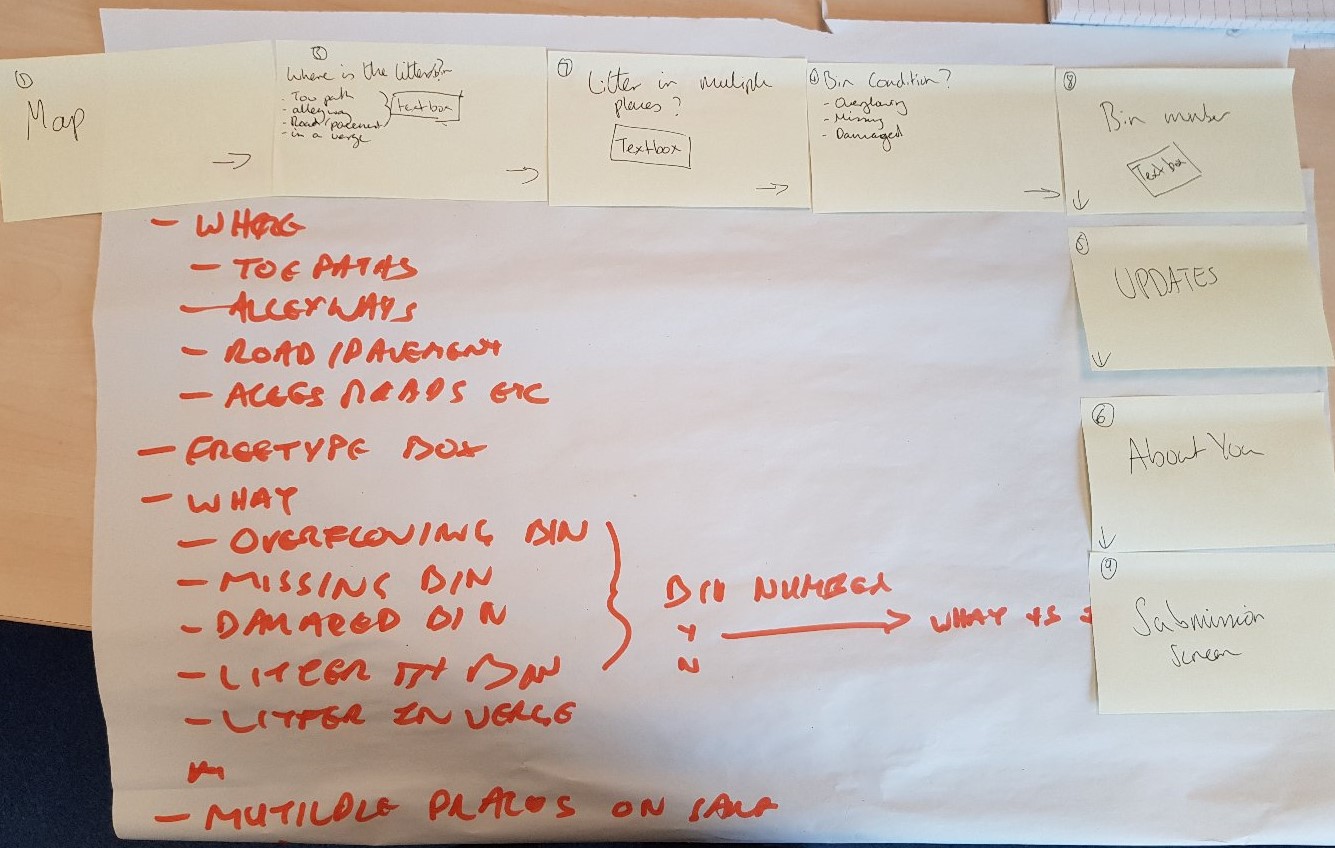 ①
Map
→
⑤
Where is the litter/bin
- Tow path
- alleyway
- Road/pavement
- in a verge
Textbox
→
⑦
Litter in multiple
places?
Textbox
→
Bin Condition?
- Overflowing
- Missing
- Damaged
→
⑧
Bin number
Textbox
↓
UPDATES
↓
⑥
About You
↓
⑨
Submission
Screen
- WHERE
- TOE PATHS
- ALLEYWAYS
- ROAD / PAVEMENT
- ACCESS ROADS ETC
- FREETYPE BOX
- WHAT
- OVERFLOWING BIN
- MISSING BIN
- DAMAGED BIN
- LITTER BY BIN
- LITTER IN VERGE
- MUTILPLE PLACES ON
BIN NUMBER
Y → WHAT IS
N